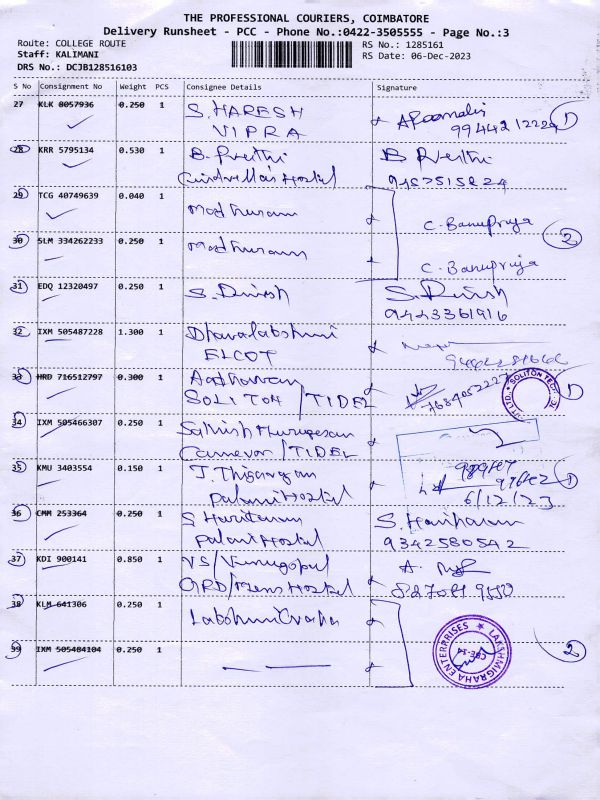 THE PROFESSIONAL COURIERS, COIMBATORE
Delivery Runsheet - PCC - Phone No.:0422-3505555 - Page No.:3
Route: COLLEGE ROUTE
Staff: KALIMANI
DRS No.: DCJB128516103
RS No.: 1285161
RS Date: 06-Dec-2023
S No Consignment No Weight PCS Consignee Details Signature
27 KLK 8057936 0.250 1 S. HARESH
VIPRA 9944212229 1
28 KRR 5795134 0.530 1 B. Preithi B Preithi
Cindrella's Hostel
29 TCG 40749639 0.040 1 Madhuram C. Banupriya
2
30 SLM 334262233 0.250 1 Madhuram C. Banupriya
31 EDQ 12320497 0.250 1 S. Dinesh S. Dinesh
9443361916
32 IXM 505487228 1.300 1 Dhanalakshmi
ELCOT
33 HRD 716512797 0.300 1 Aadhavan 7684052227 SOLITON TEC 1
SOLITON/TIDEL
34 IXM 505466307 0.250 1 Sathish Murugesan
/TIDEL
35 KMU 3403554 0.150 1 J. Thiyagan 1
Palani Hostel 6/12/23
36 CMM 253364 0.250 1 S Hariharan S. Hariharan
Palani Hostel 9342580542
37 KDI 900141 0.850 1 VS/Venugopal
GRD/Mens Hostel
38 KLM 641306 0.250 1 Lakshmi Graha
LAKSHMIGRAHA ENTERPRISES
CBE-14
39 IXM 505484104 0.250 1 2